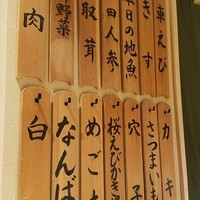 車えび
きす
本日の地魚
田人参
取茸
野菜
肉
カキ
さつまいも
穴子
桜えびかき
めごち
なんば
白